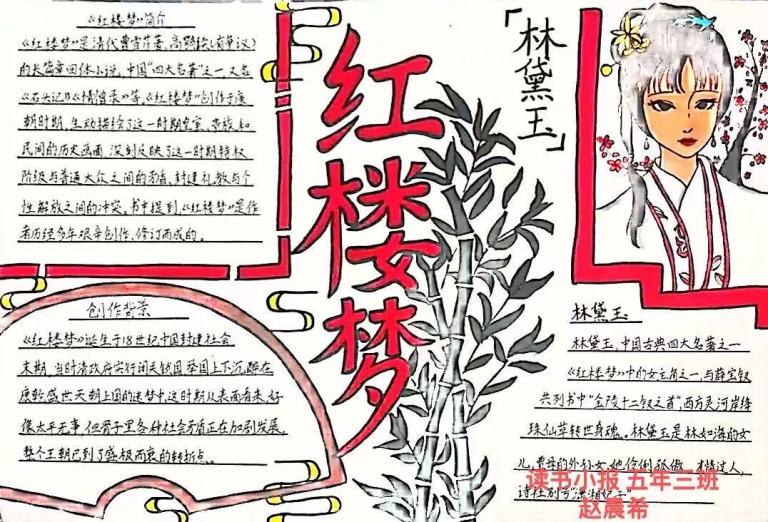 《红楼梦》简介
《红楼梦》是清代曹雪芹著、高鹗续(有争议)
的长篇章回体小说，中国"四大名著"之一，又名
《石头记》《情僧录》等，《红楼梦》创作于康
朝时期，生动描绘了这一时期皇室、贵族和
民间的历史画面，深刻反映了这一时期特权
阶级与普通大众之间的矛盾、封建礼教与个
性解放之间的冲突。书中提到，《红楼梦》是作
者历经多年艰辛创作、修订而成的。
红楼梦
「林黛玉」
创作背景
《红楼梦》诞生于18世纪中国封建社会
末期，当时清政府实行闭关锁国，举国上下沉醉在
康乾盛世天朝上国的迷梦中，这时期从表面看来，好
像太平无事，但骨子里各种社会矛盾正在加剧发展，
整个王朝已到了盛极而衰的转折点。
林黛玉
林黛玉，中国古典四大名著之一
《红楼梦》中的女主角之一，与薛宝钗
共列书中"金陵十二钗之首"，西方灵河岸绛
珠仙草转世身魂。林黛玉是林如海的女
儿，贾母的外孙女，她伶俐孤傲，才情过人，
诗社别号"潇湘妃子"
读书小报 五年三班
赵晨希